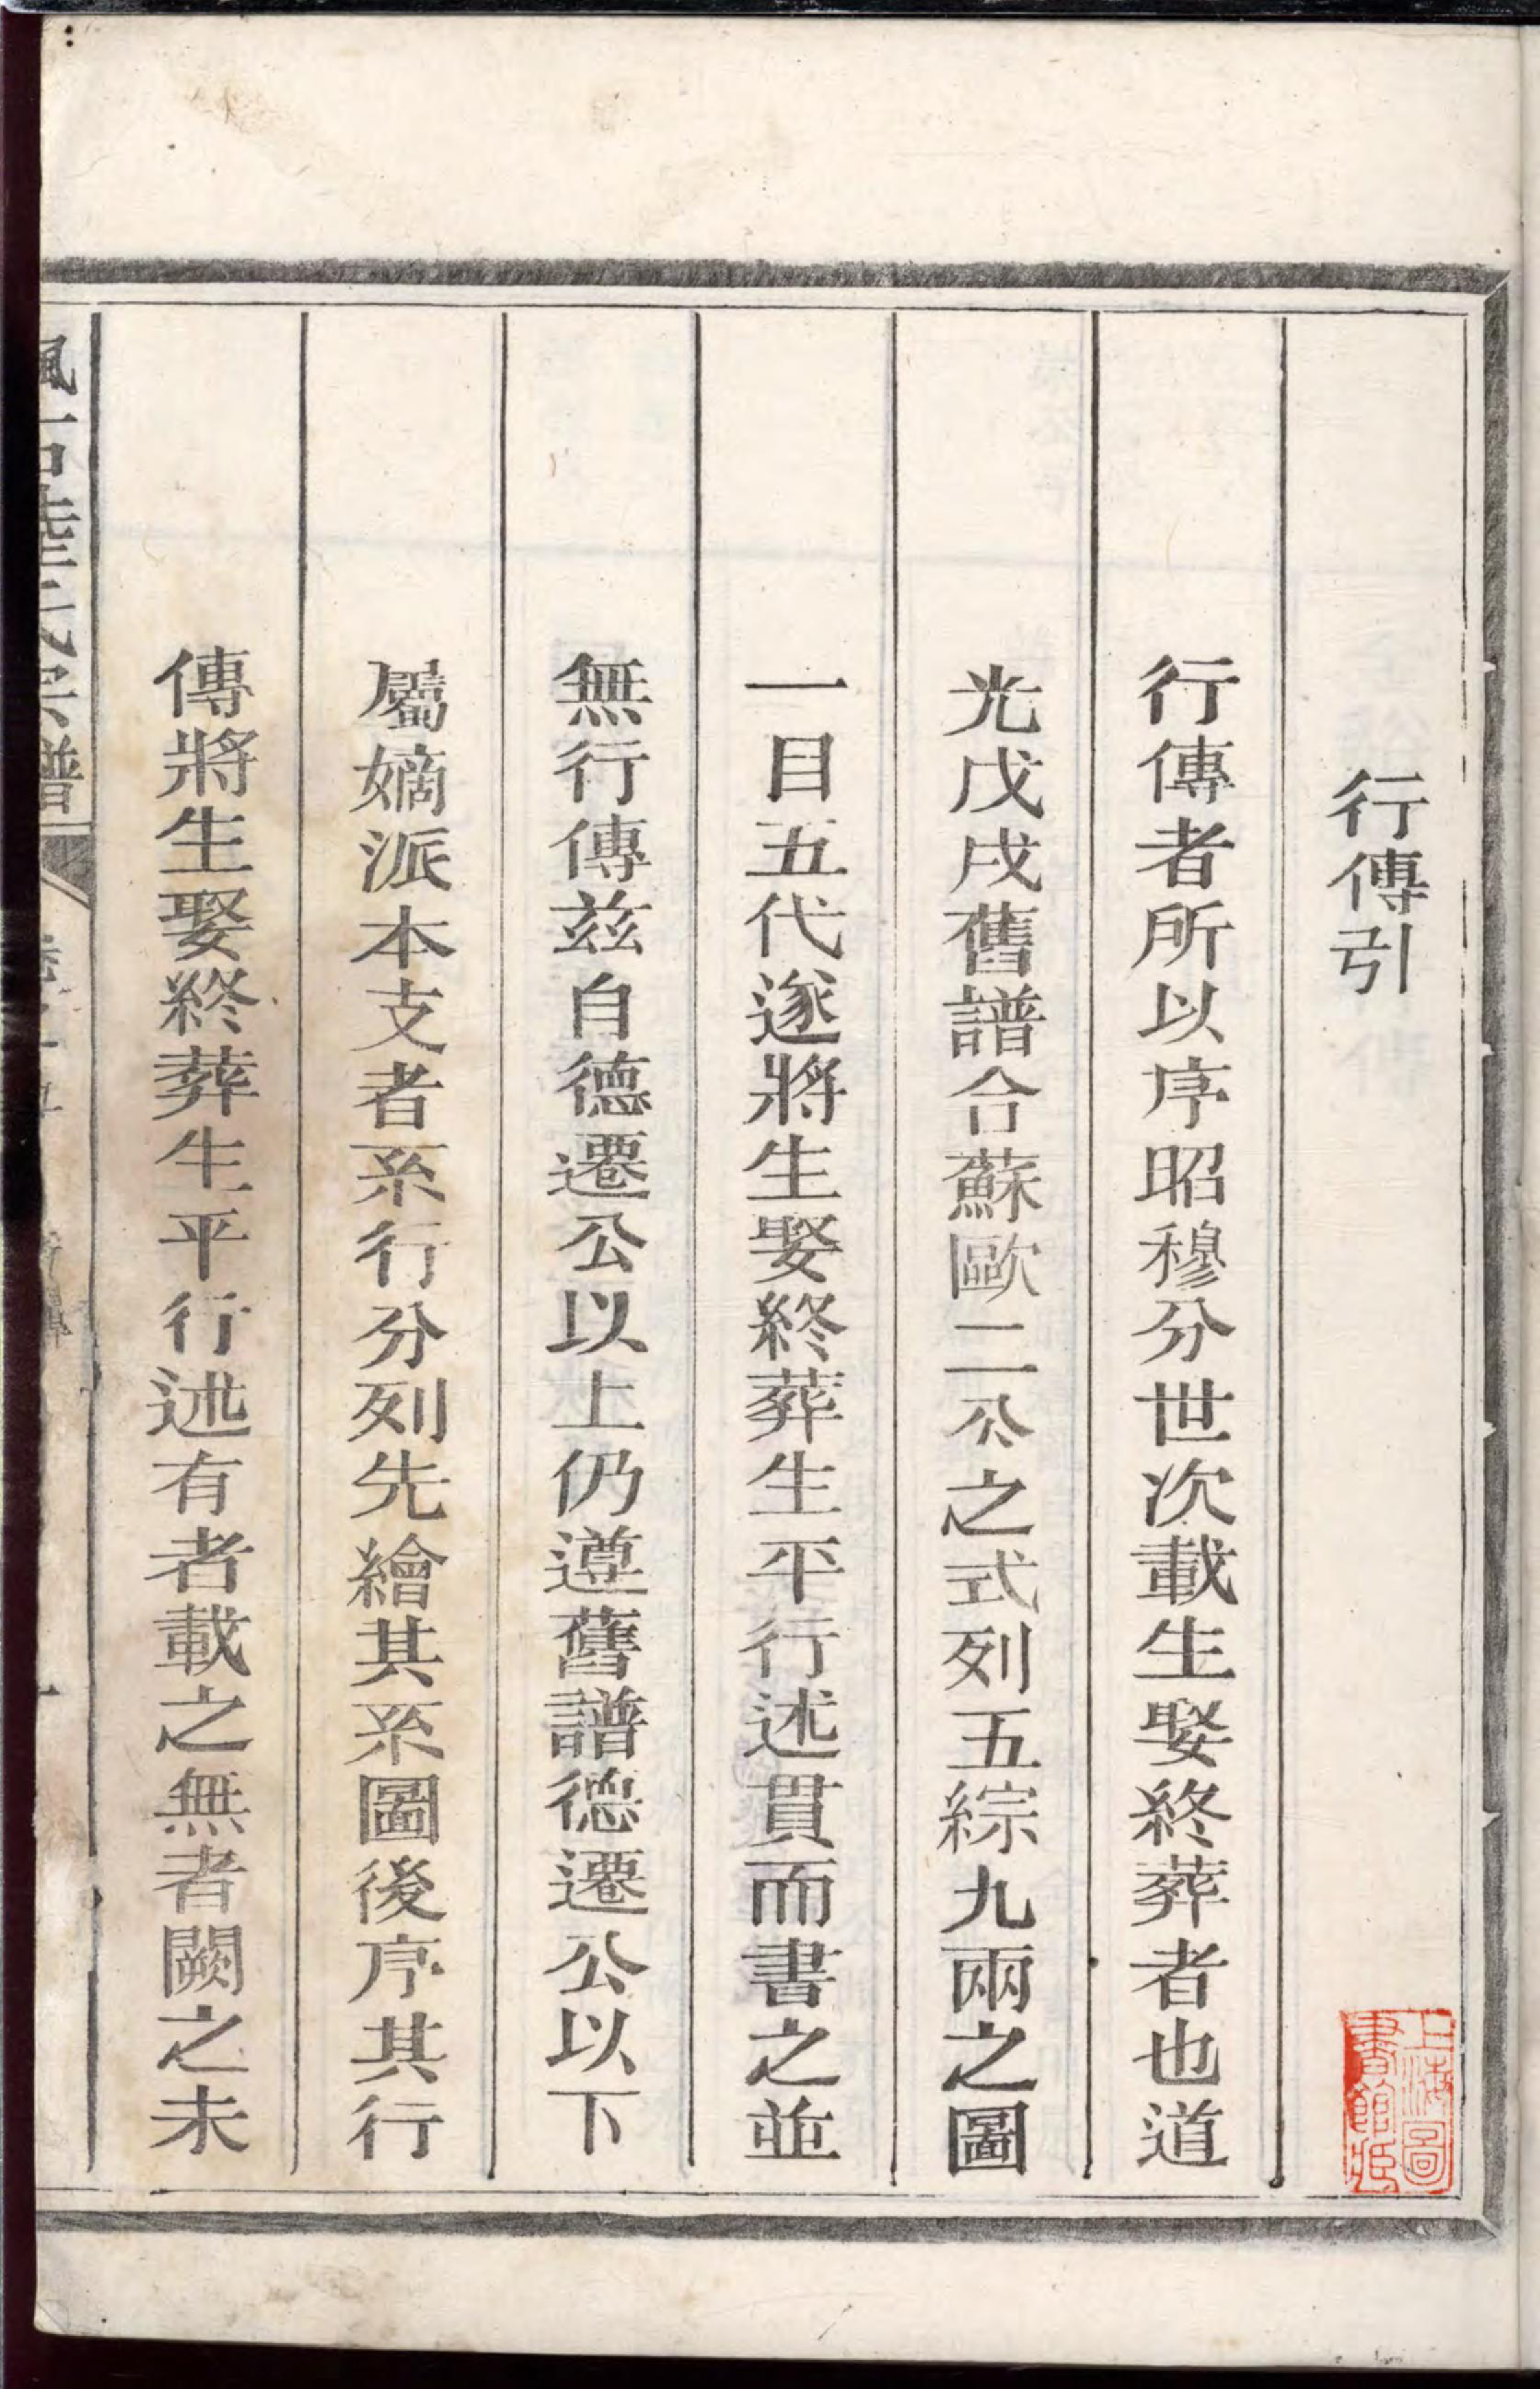 行傳引
行傳者所以序昭穆分世次載生娶終葬者也道
光戊戌舊譜合蘇歐二公之式列五綜九兩之圖
一目五代遂將生娶終葬生平行述貫而書之並
無行傳茲自德遷公以上仍遵舊譜德遷公以下
屬嫡派本支者系行分列先繪其系圖後序其行
傳將生娶終葬生平行述有者載之無者闕之未
陸氏宗譜
上海圖
書館藏